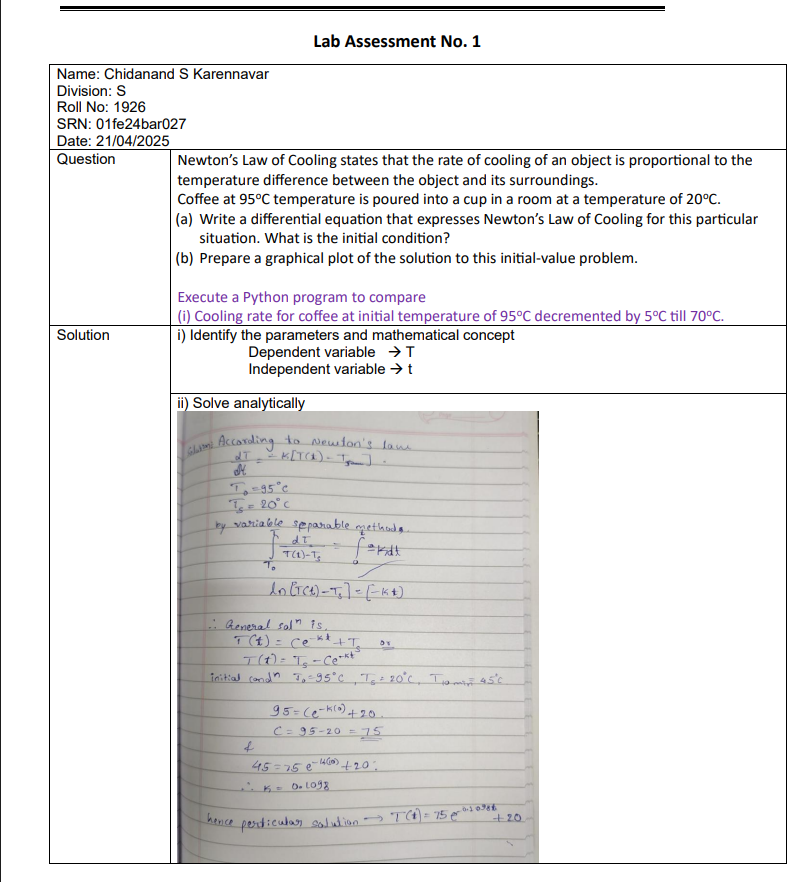 Lab Assessment No. 1
Name: Chidanand S Karennavar
Division: S
Roll No: 1926
SRN: 01fe24bar027
Date: 21/04/2025
Question
Newton's Law of Cooling states that the rate of cooling of an object is proportional to the
temperature difference between the object and its surroundings.
Coffee at 95ºC temperature is poured into a cup in a room at a temperature of 20ºC.
(a) Write a differential equation that expresses Newton's Law of Cooling for this particular
situation. What is the initial condition?
(b) Prepare a graphical plot of the solution to this initial-value problem.
Execute a Python program to compare
(i) Cooling rate for coffee at initial temperature of 95ºC decremented by 5ºC till 70ºC.
Solution
i) Identify the parameters and mathematical concept
Dependent variable → T
Independent variable → t
ii) Solve analytically
According to Newton's law
dT/dt = -K[T(t) - Ts].
T₀ = 95°C
Ts = 20°C
by variable separable methods.
∫ dT/T(t)-Ts = ∫ -Kdt
T₀ 0
ln[T(t)-Ts] = [-Kt)
∴ General solⁿ is.
T(t) = Ce^-kt + Ts or
T(t) = Ts - Ce^-kt
initial condⁿ T₀ = 95°C, Ts = 20°C, T10 min = 45°C
95 = Ce^-k(0) + 20.
C = 95-20 = 75
&
45 = 75 e^-k(10) + 20.
∴ K = 0.1098
hence perticular solution → T(t) = 75 e + 20